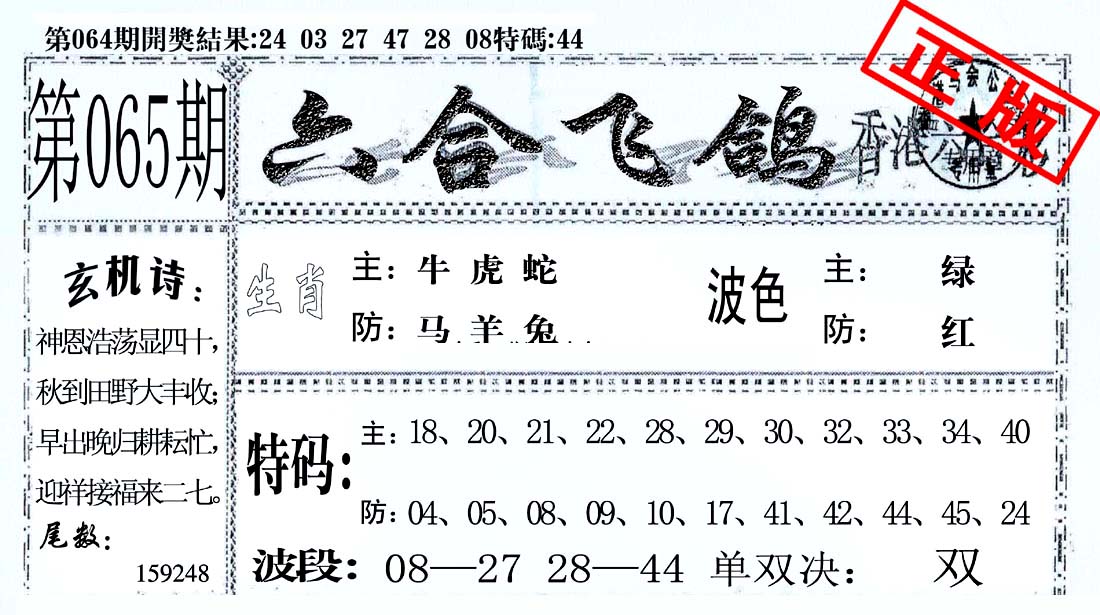 第064期開獎結果:24 03 27 47 28 08特碼:44
第065期
六合飞鸽
香港
正版
玄机诗：
神恩浩荡显四十，
秋到田野大丰收；
早出晚归耕耘忙，
迎祥接福来二七。
尾数：
159248
生肖
主：牛 虎 蛇
防：马 羊 兔
波色
主： 绿
防： 红
特码：
主：18、20、21、22、28、29、30、32、33、34、40
防：04、05、08、09、10、17、41、42、44、45、24
波段：08—27 28—44 单双决： 双